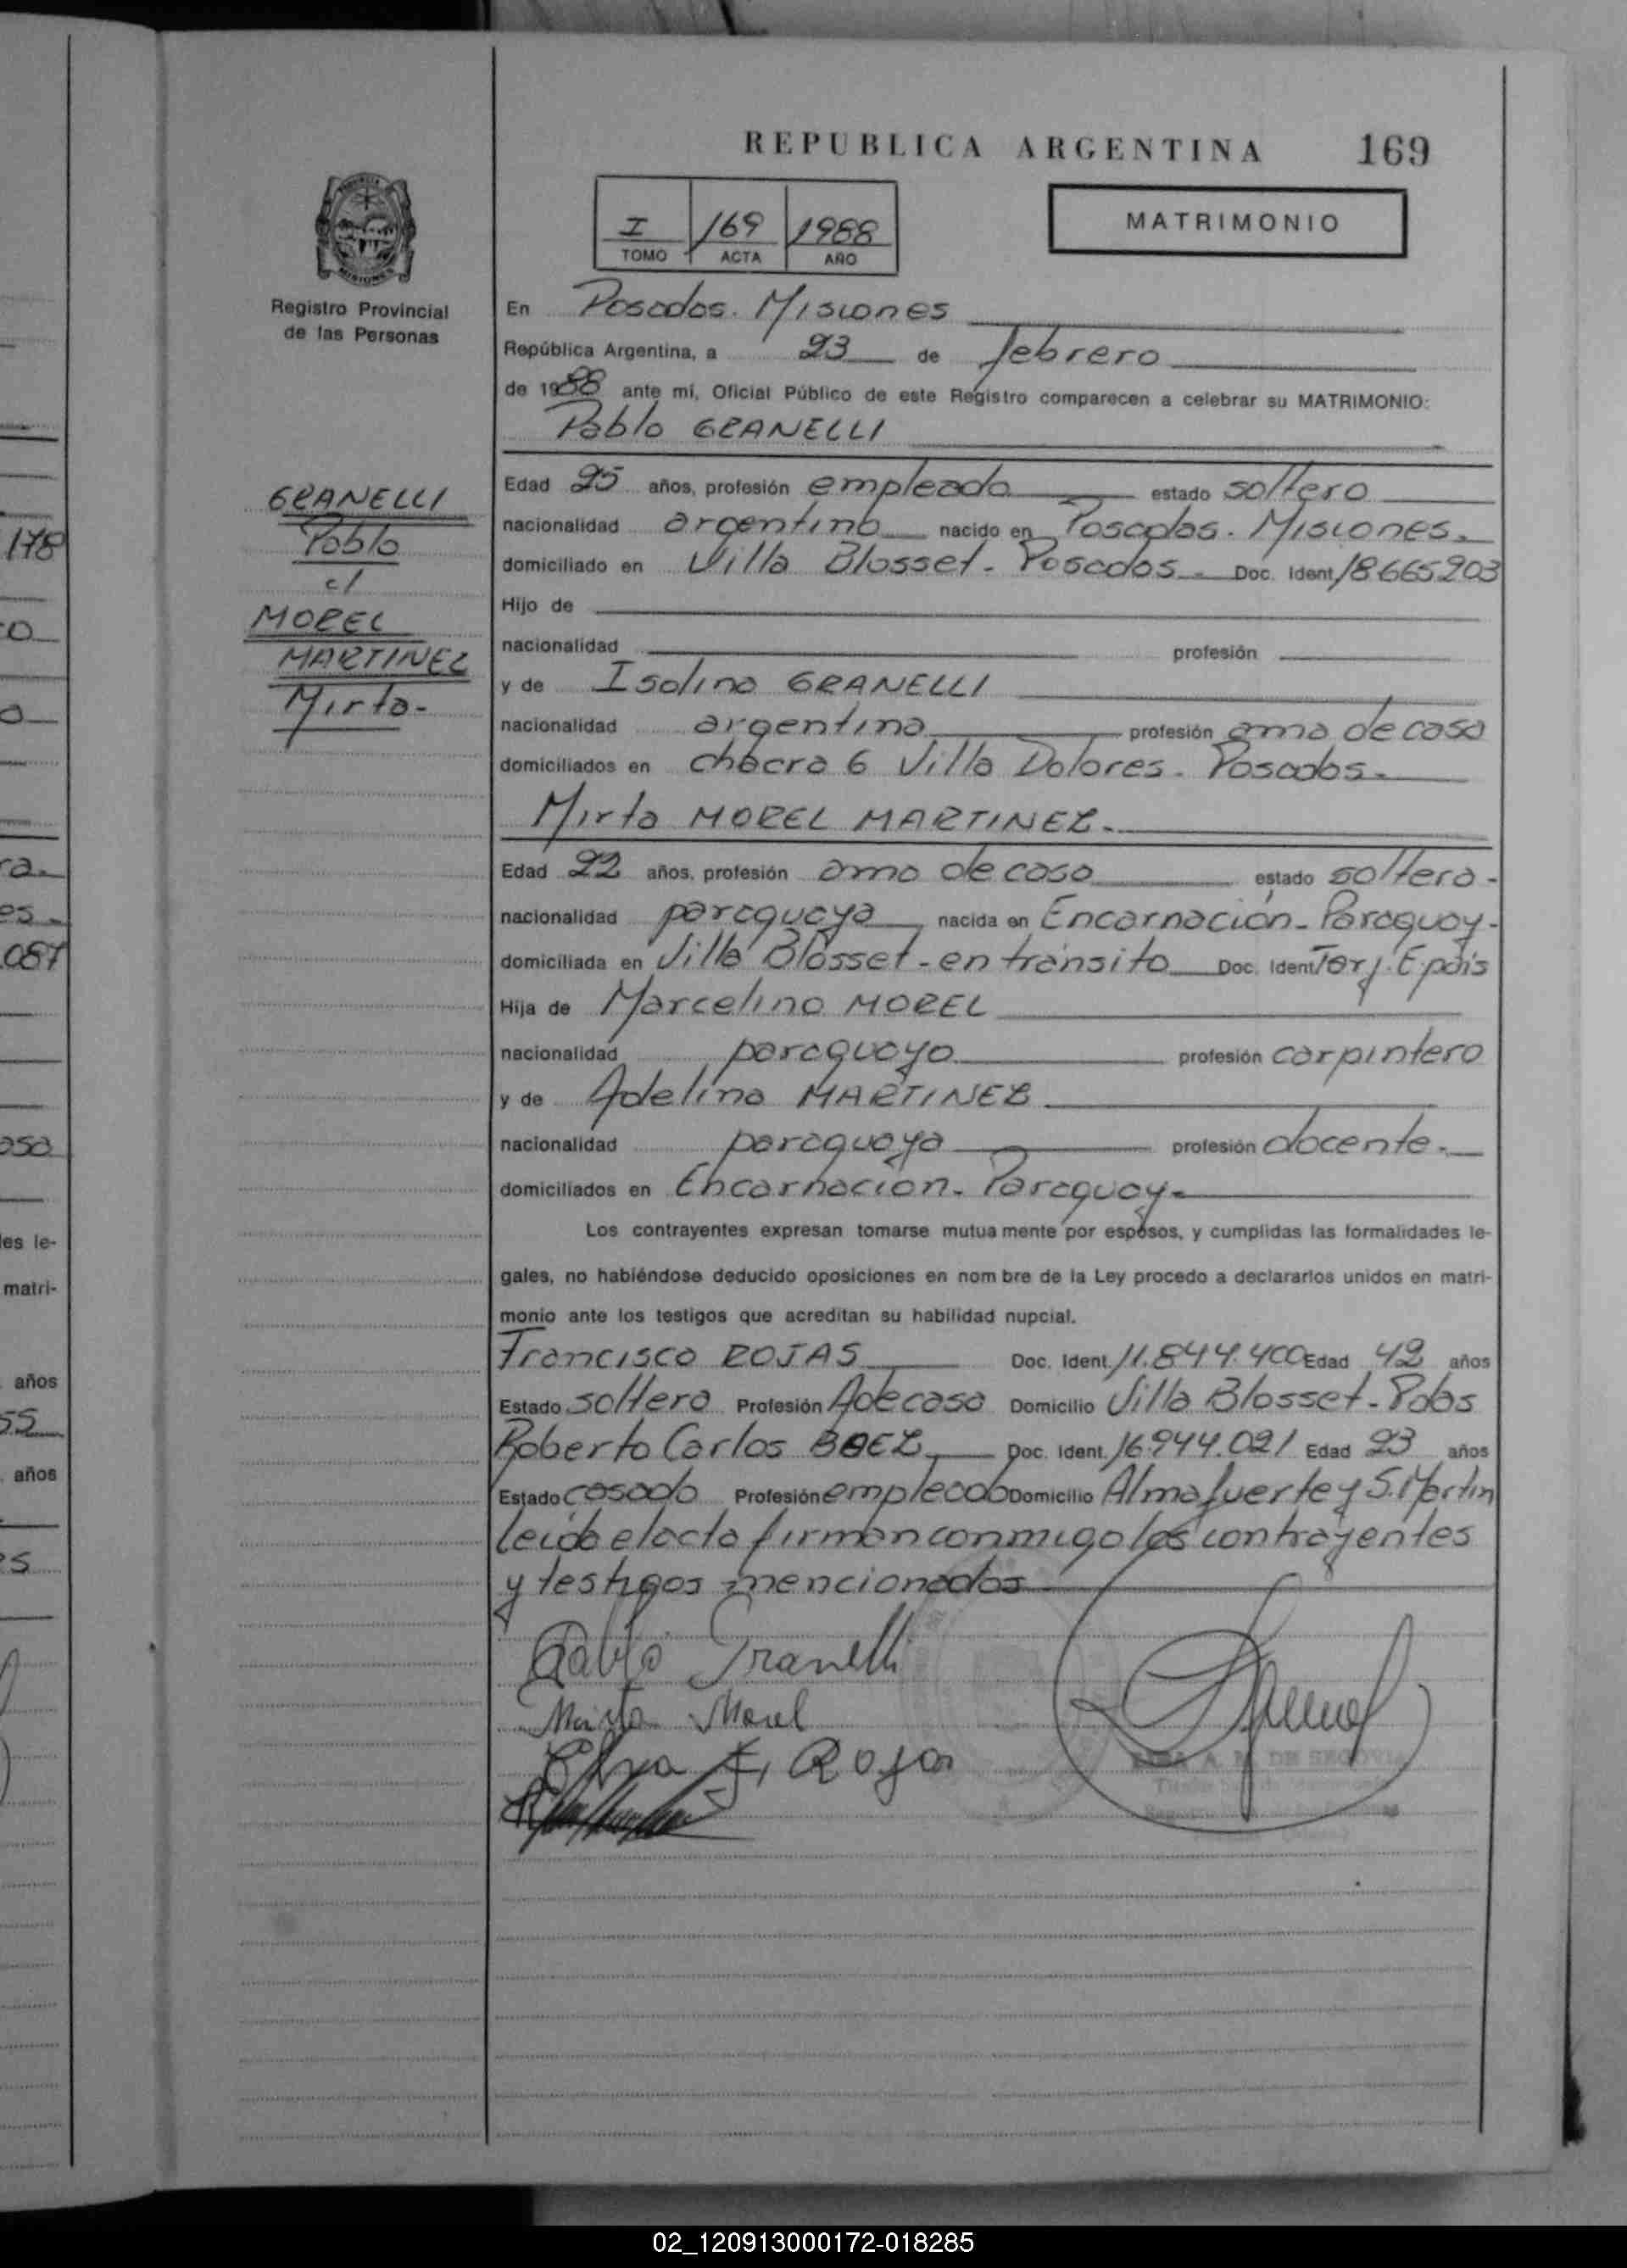 REPUBLICA ARGENTINA 169
MATRIMONIO
I 169 1988
TOMO ACTA AÑO
Registro Provincial
de las Personas
En Posadas. Misiones
República Argentina, a 23 de febrero
de 1988 ante mí, Oficial Público de este Registro comparecen a celebrar su MATRIMONIO:
Pablo GRANELLI
GRANELLI
Pablo
c/
MOREL
MARTINEZ
Mirta-
Edad 25 años, profesión empleado estado soltero
nacionalidad argentino nacido en Posadas. Misiones.
domiciliado en Villa Blosset. Posadas. Doc. Ident 18665203
Hijo de
nacionalidad profesión
y de Isolina GRANELLI
nacionalidad argentina profesión ama de casa
domiciliados en chacra 6 Villa Dolores. Posadas.
Mirta MOREL MARTINEZ.
Edad 22 años, profesión ama de casa estado soltera-
nacionalidad paraguaya nacida en Encarnación-Paraguay-
domiciliada en Villa Blosset-en tránsito Doc. Ident Tarj. E. país
Hija de Marcelino MOREL
nacionalidad paraguayo profesión carpintero
y de Adelina MARTINEZ
nacionalidad paraguaya profesión docente.
domiciliados en Encarnación. Paraguay-
Los contrayentes expresan tomarse mutua mente por esposos, y cumplidas las formalidades le-
gales, no habiéndose deducido oposiciones en nom bre de la Ley procedo a declararlos unidos en matri-
monio ante los testigos que acreditan su habilidad nupcial.
Francisco ROJAS Doc. Ident. 11.844.400 Edad 42 años
Estado soltera Profesión A de casa Domicilio Villa Blosset-Pdas
Roberto Carlos BAEZ Doc. Ident. 16.944.021 Edad 23 años
Estado casado Profesión empleado Domicilio Almafuerte y S. Martin
leida el acta firman conmigo los contrayentes
y testigos mencionados
Pablo Granelli
Mirta Morel
Rojas
A. M. DE SEGOVIA
178
o
o
ra.
es.
087
asa
les le-
matri-
años
55
años
es
02_120913000172-018285